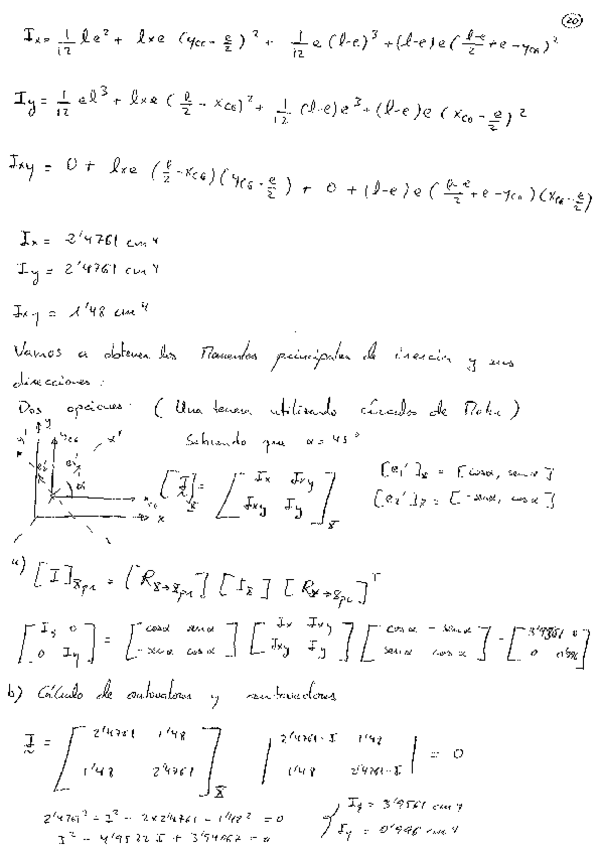 20
Ix = 1/12 le² + lxe (ycG - e/2)² + 1/12 e (l-e)³ + (l-e)e ( (l-e)/2 + e - ycG )²
Iy = 1/12 el³ + lxe ( l/2 - xcG )² + 1/12 (l-e)e³ + (l-e)e ( xcG - e/2 )²
Ixy = 0 + lxe ( l/2 - xcG )( ycG - e/2 ) + 0 + (l-e)e ( (l-e)/2 + e - ycG )( xcG - e/2 )
Ix = 2'4761 cm⁴
Iy = 2'4761 cm⁴
Ixy = 1'48 cm⁴
Vamos a obtener los Momentos principales de inercia y sus
direcciones:
Dos opciones: ( Una tercera utilizando círculos de Mohr )
Sabiendo que α = 45°
[I]x = [ Ix Ixy
Ixy Iy ]x
[e1']x = [cosα, senα]
[e2']x = [-senα, cosα]
a) [I]xpr = [Rx→xpr] [Ix] [Rx→xpr]ᵀ
[ Iξ 0
0 Iη ] = [ cosα senα
-senα cosα ] [ Ix Ixy
Ixy Iy ] [ cosα -senα
senα cosα ] = [ 3'9561 0
0 0'996 ]
b) Cálculo de autovalores y autovectores
I = [ 2'4761 1'48
1'48 2'4761 ]x
| 2'4761-I 1'48
1'48 2'4761-I | = 0
I² - 4'9522 I + = 0
Iξ = 3'9561 cm⁴
Iη = 0'996 cm⁴